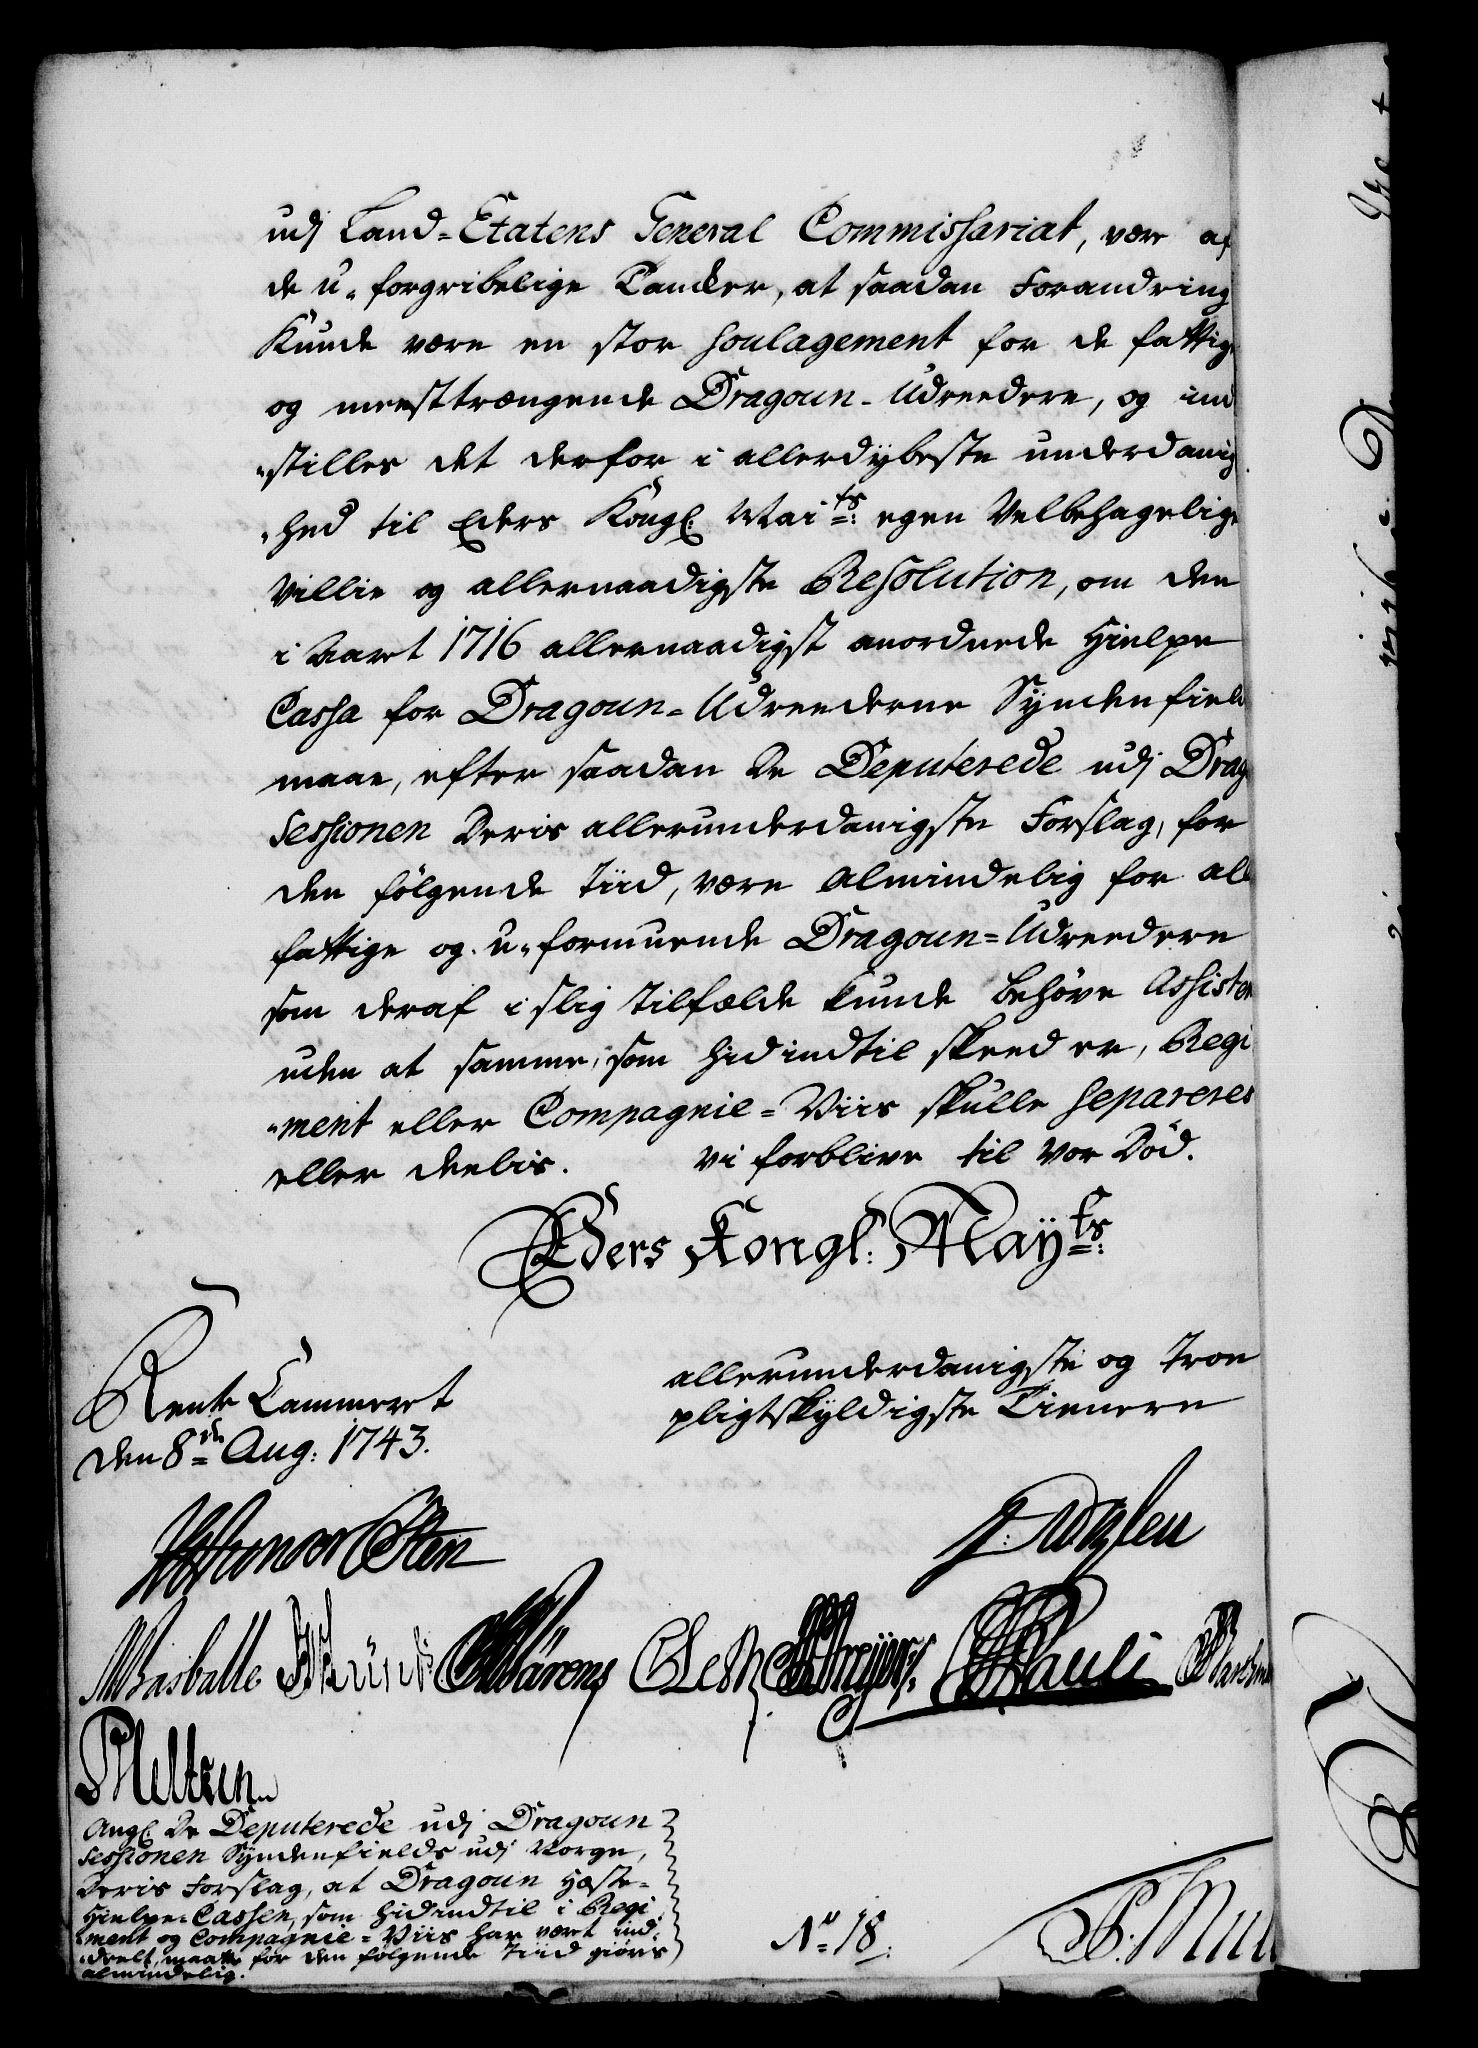 udj Land-Etatens General Commissariat, være af
de u-forgribelige Tancker, at saadan Forandring
Kunde være en stor soulagement for de fattige
og meest trængende Dragoun-Udreedere, og ind
-stilles det derfor i allerdybeste underdanig
-hed til Eders Kongl. Maits: egen Velbehagelige
Villie og allernaadigste Resolution, om den
i Aaret 1716 allernaadigst anordnede Hielpe
Cassa for Dragoun-Udreederne Syndenfield
maae, efter saadan De Deputerede udj Drag
Sessionen Deris allerunderdanigste Forslag, for
den følgende Tiid, være Almindelig for alle
fattige og u-formuende Dragoun-Udreedere
som deraf i slig Tilfælde kunde behøve Assisten
uden at samme, som hidindtil skeed er, Regi
-ment eller Compagnie-Viis skulle separeres
eller deelis. Vi forblive til vor Død.
Eders Kongl: Mayts:
allerunderdanigste og Troe
pligtskyldigste Tienere
Rente Cammeret
den 8de Aug: 1743.
Pauli
Meltzen
Angl. De Deputerede udj Dragoun
Sessionen Syndenfields udj Norge,
Deris Forslag, at Dragoun Hæste-
Hielpe-Cassen, som hidindtil i Regi
-ment og Compagnie-Viis har været ind
-deelt, maatte for den følgende Tiid giøris
almindelig.
No 18.